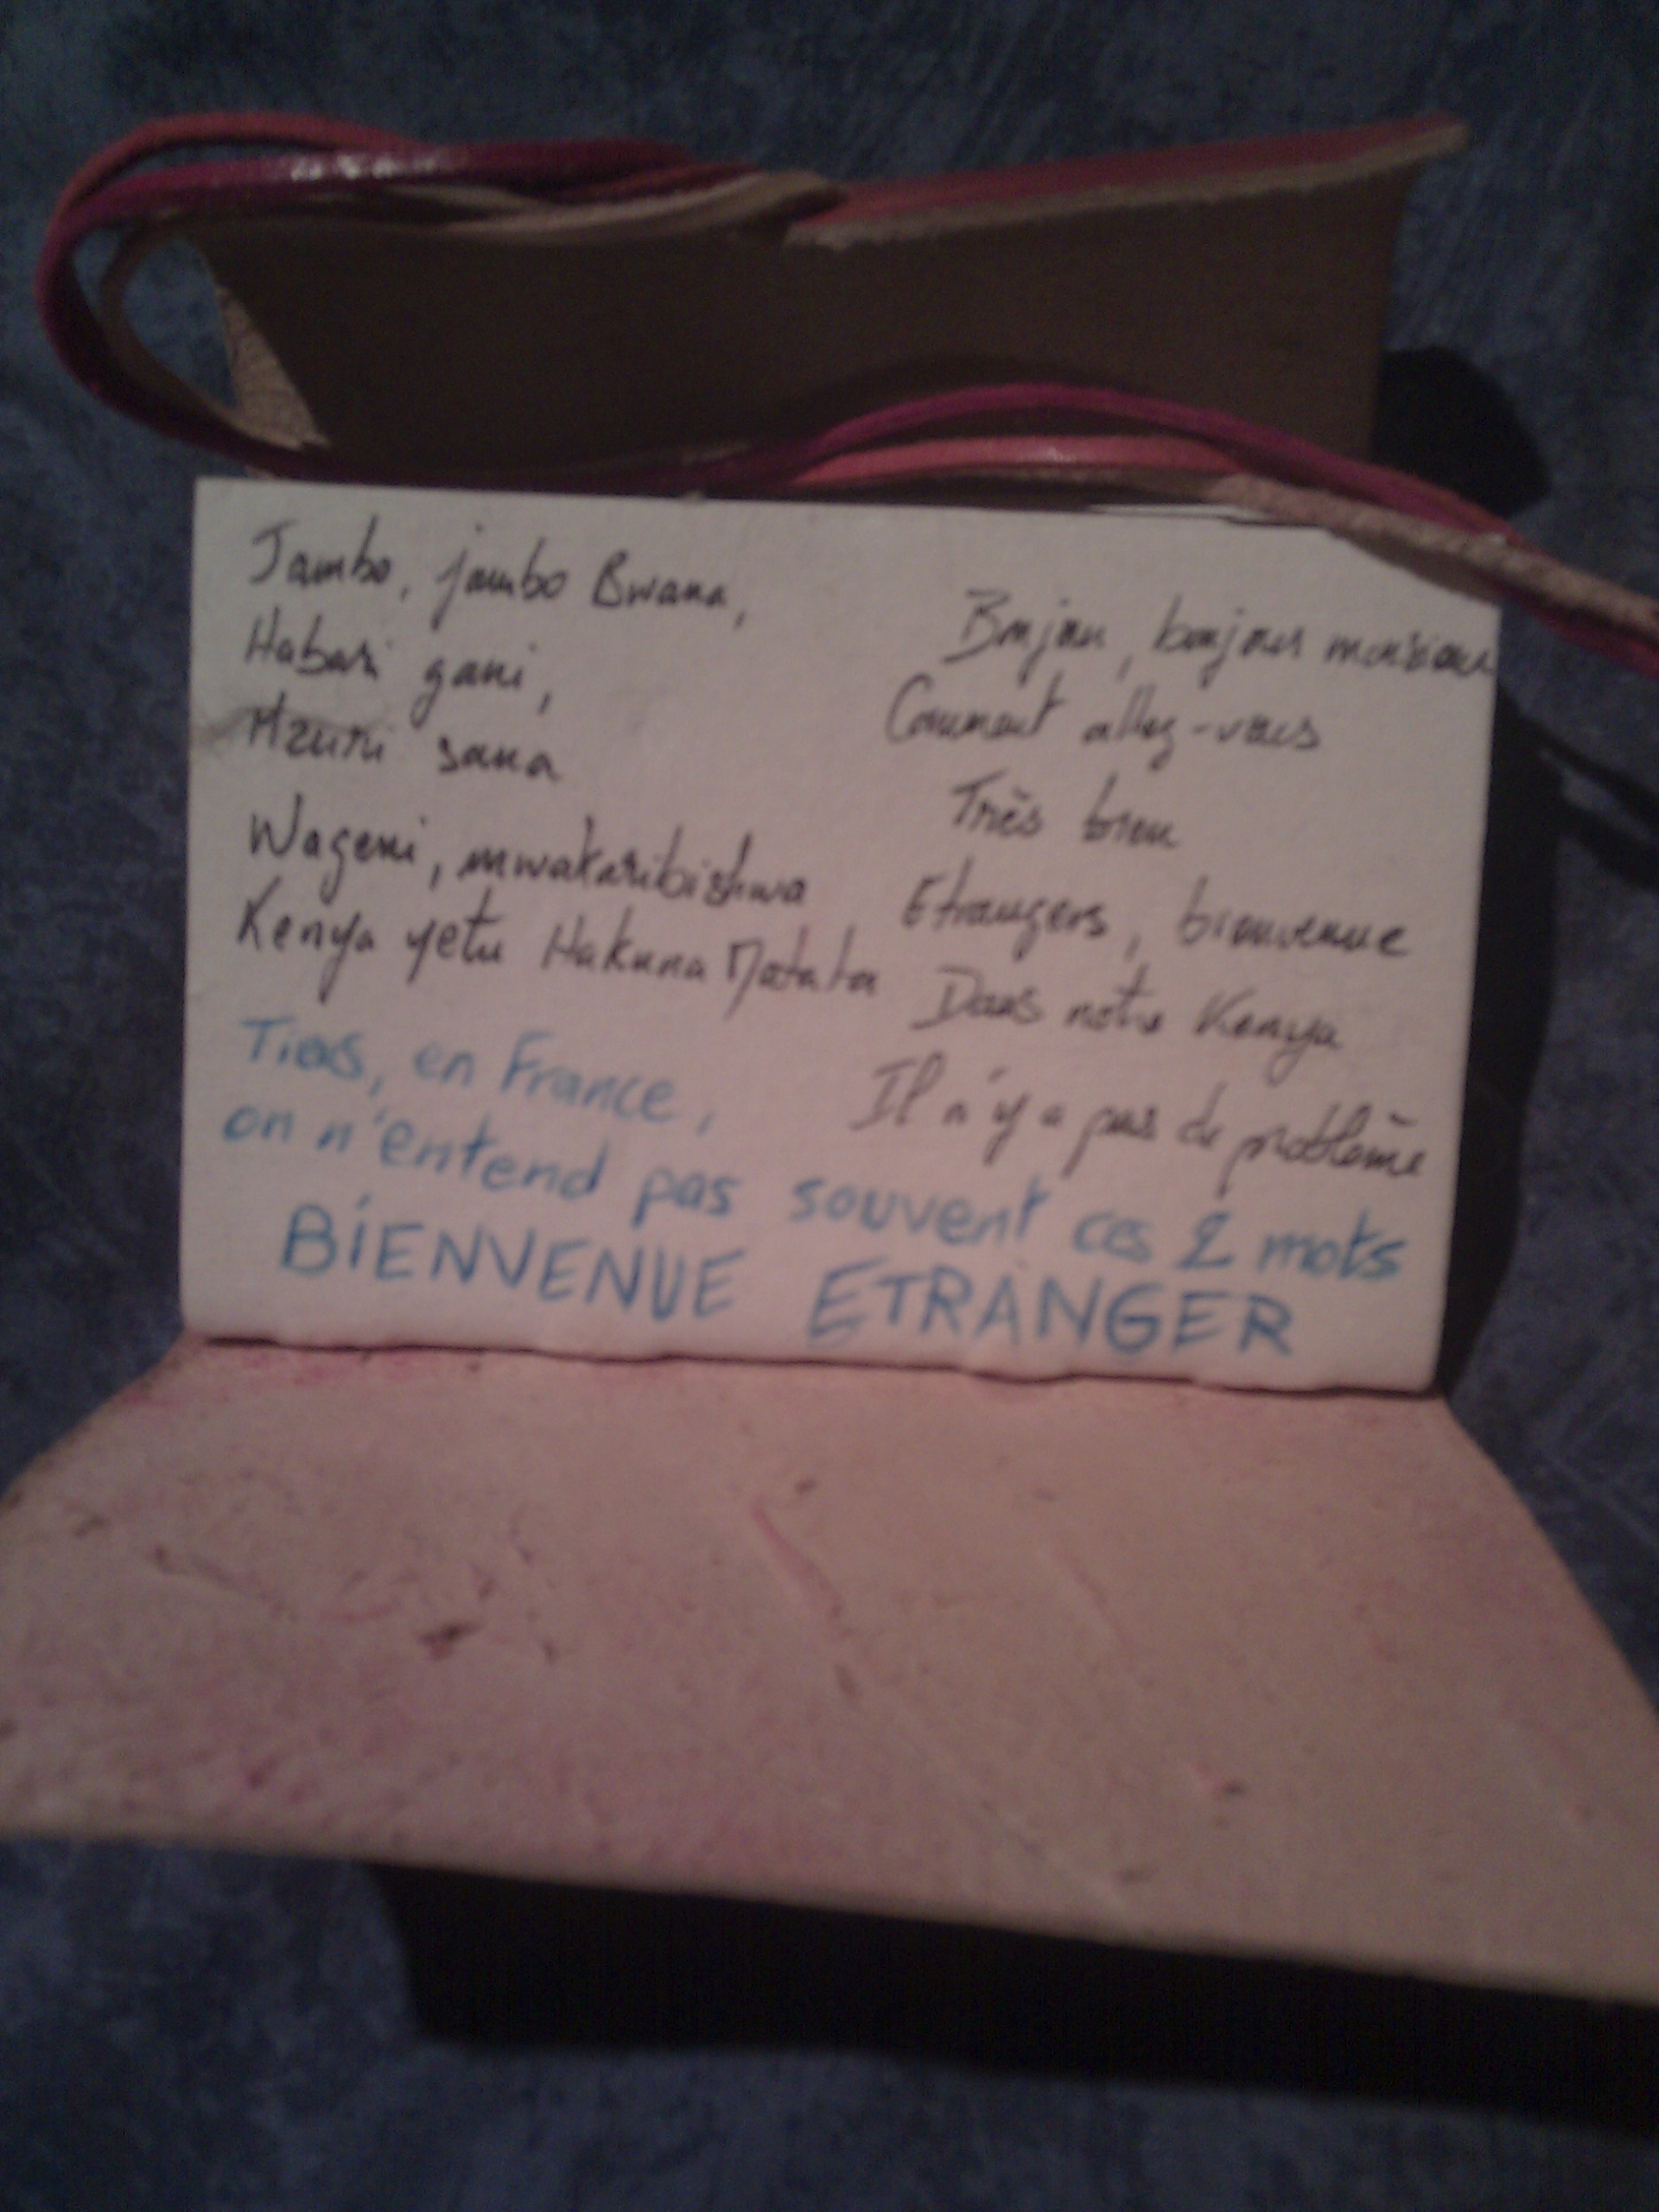 Jambo, jambo Bwana,
Habari gani,
Mzuri sana
Wageni, mwakaribishwa
Kenya yetu Hakuna Matata
Bonjour, bonjour monsieur
Comment allez-vous
Très bien
Etrangers, bienvenue
Dans notre Kenya
Il n'y a pas de problème
Tiens, en France,
on n'entend pas souvent ces 2 mots
BIENVENUE ETRANGER